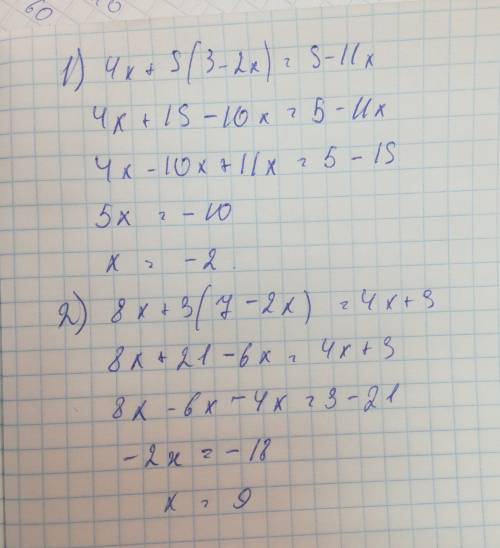 1) 4x + 5(3-2x) = 5-11x
4x + 15 - 10x = 5 - 11x
4x - 10x + 11x = 5 - 15
5x = -10
x = -2.
2) 8x + 3(7 - 2x) = 4x + 3
8x + 21 - 6x = 4x + 3
8x - 6x - 4x = 3 - 21
-2x = -18
x = 9